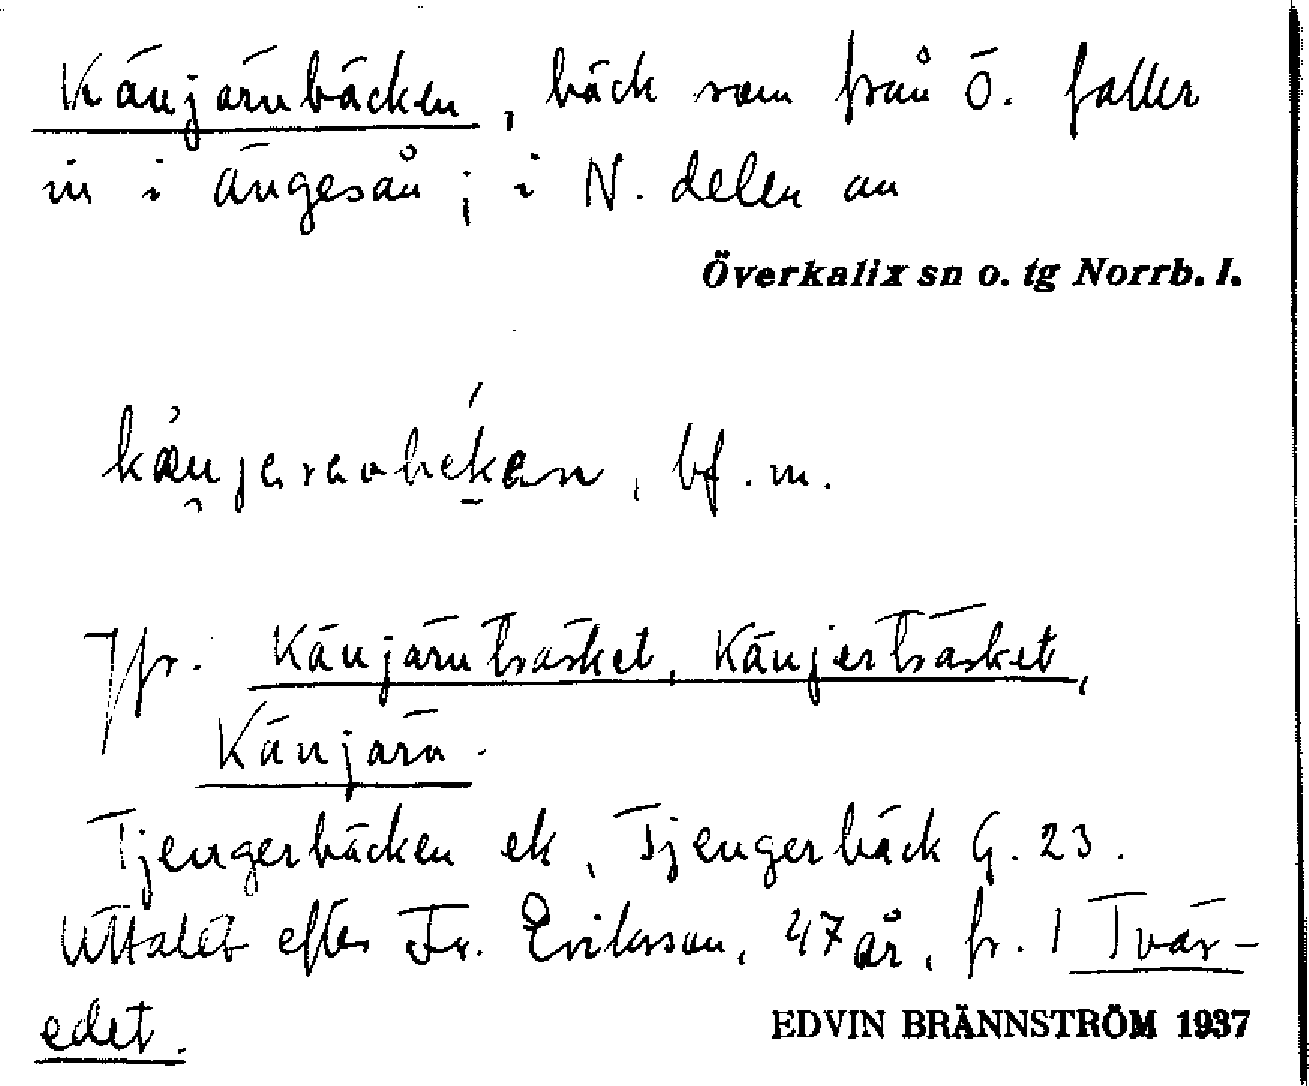 Känjärnbäcken, bäck som från Ö. faller
in i Ängesån; i N. delen av
Överkalix sn o. tg Norrb. l.
bf. m.
Jfr. Känjärnträsket, Känjerträsket,
Känjärn.
Tjengerbäcken ek, Tjengerbäck G. 23.
Uttalet efter Fr. Eriksson, 47 år, fr. 1 Tvär-
edet.
EDVIN BRÄNNSTRÖM 1937